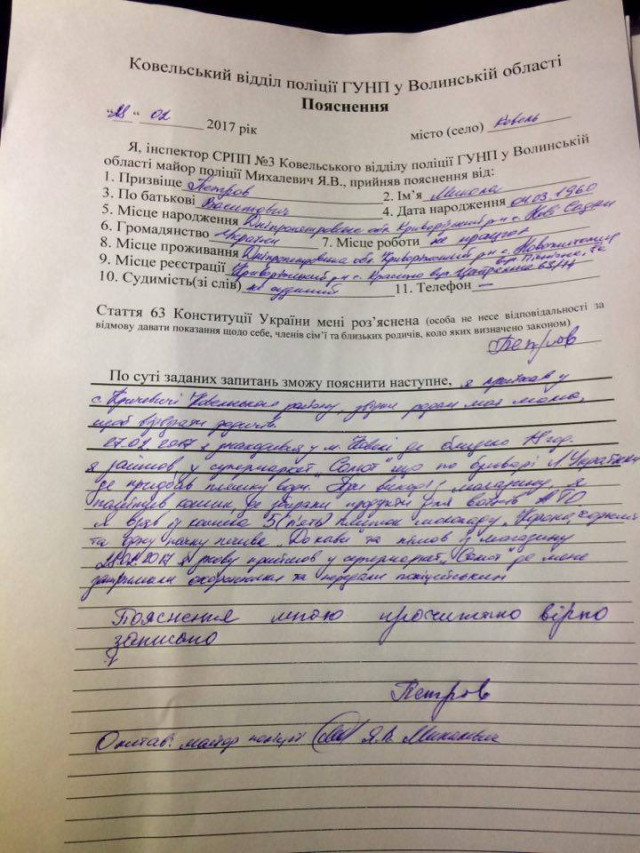 Ковельський відділ поліції ГУНП у Волинській області
Пояснення
"28" 02 2017 рік місто (село) Ковель
Я, інспектор СРПП №3 Ковельського відділу поліції ГУНП у Волинській
області майор поліції Михалевич Я.В., прийняв пояснення від:
1. Прізвище Петров 2. Ім'я Микола
3. По батькові 4. Дата народження 04.03.1960
5. Місце народження Дніпропетровська обл. Криворізький р-н с.
6. Громадянство України 7. Місце роботи не працює
8. Місце проживання Дніпропетровська обл. Криворізький р-н с.
9. Місце реєстрації Криворізький р-н с. вул.
10. Судимість(зі слів) не судимий 11. Телефон —
Стаття 63 Конституції України мені роз'яснена (особа не несе відповідальності за
відмову давати показання щодо себе, членів сім'ї та близьких родичів, коло яких визначено законом)
Петров
По суті заданих запитань зможу пояснити наступне, я приїхав у
с. Ковельського району, родом моя мама,
щоб
27.02.2017 я знаходився у м. Ковелі де близько
я зайшов у супермаркет "Салют" що по бульварі Л. Українки
де придбав пляшку води. При виході з магазину, я
помітив кошик, де збирали продукти для воїнів АТО
Я взяв із кошика 5 (п'ять) плиток шоколаду "Корона"
та одну пачку печива "До кави" та пішов з магазину
28.02.2017 я знову прийшов у супермаркет "Салют" де мене
затримали охоронники та передали поліцейським
Пояснення мною прочитано вірно
записано
Петров
Опитав: майор поліції Я.В. Михалевич